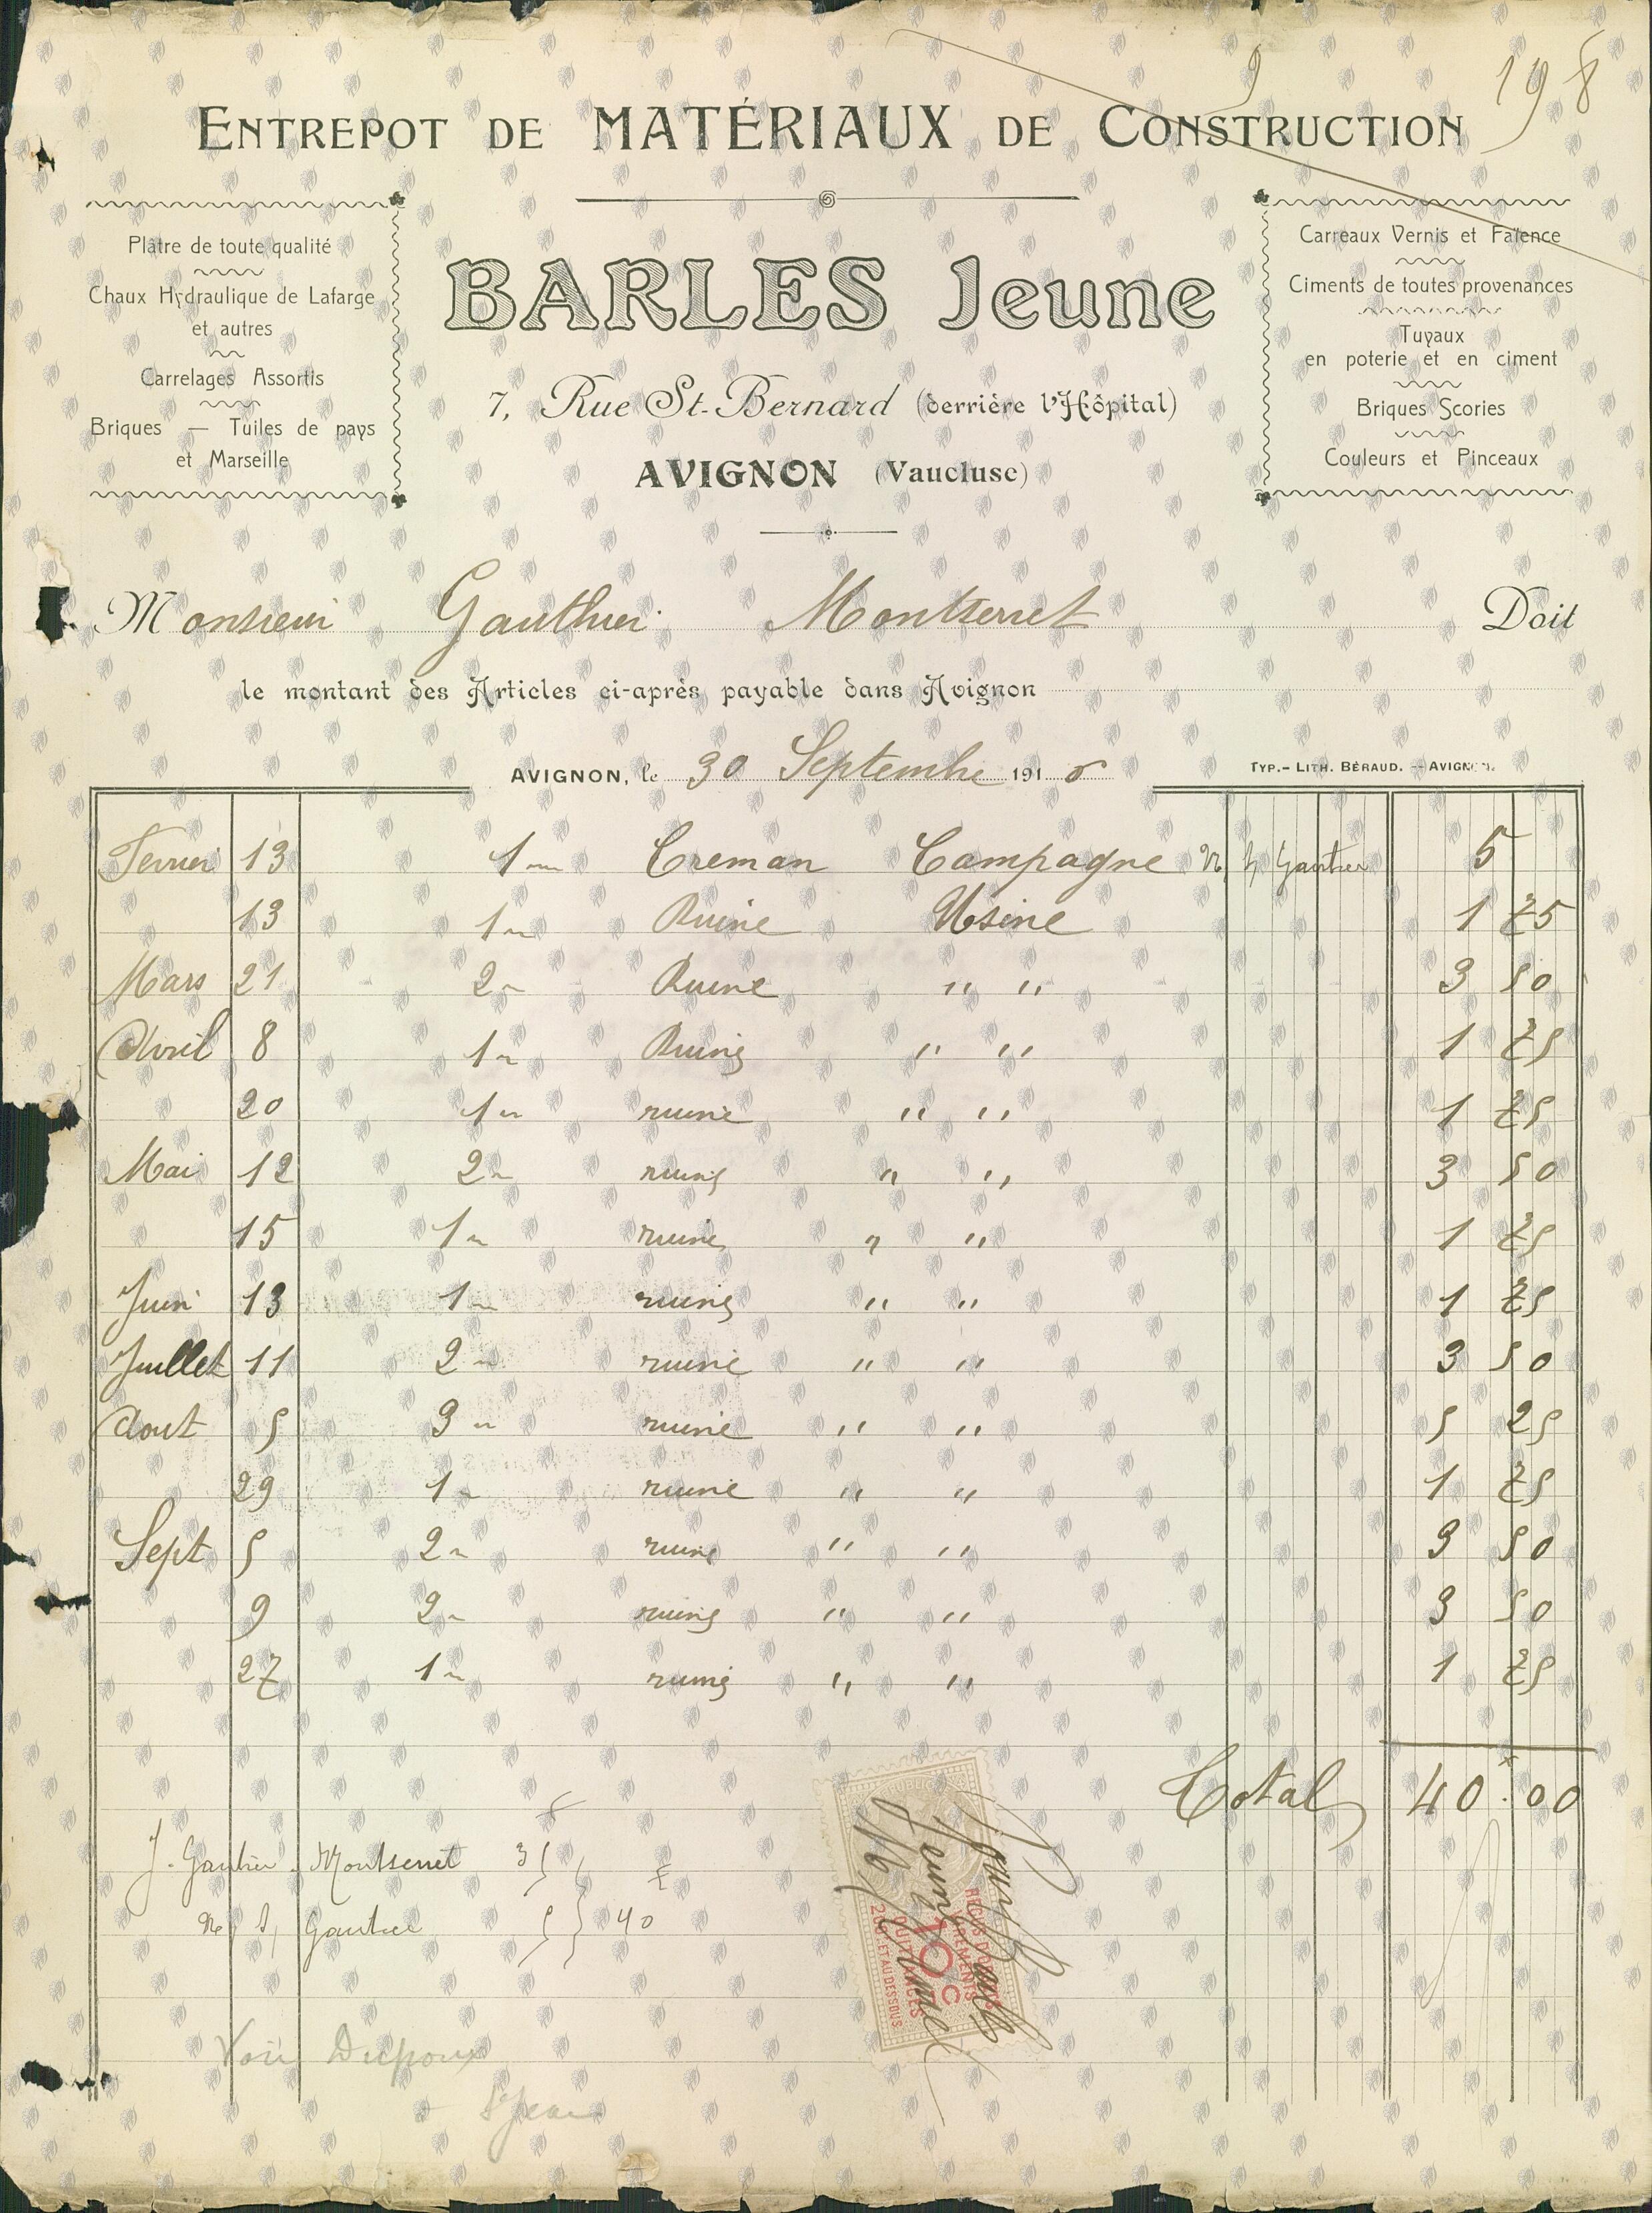 9
198
ENTREPOT DE MATÉRIAUX DE CONSTRUCTION
Plâtre de toute qualité
Chaux Hydraulique de Lafarge
et autres
Carrelages Assortis
Briques — Tuiles de pays
et Marseille
BARLES Jeune
7, Rue St-Bernard (derrière l'Hôpital)
AVIGNON (Vaucluse)
Carreaux Vernis et Faïence
Ciments de toutes provenances
Tuyaux
en poterie et en ciment
Briques Scories
Couleurs et Pinceaux
Monsieur Gauthier Montserret Doit
le montant des Articles ci-après payable dans Avignon
AVIGNON, le 30 Septembre 191
TYP.- LITH. BÉRAUD. - AVIGNON.
Fevrier 13 1 Creman Campagne Gautier 5
13 1 Ruine Usine 1 75
Mars 21 2 Ruine " " 3 50
Avril 8 1 Ruine " " 1 75
20 1 ruine " " 1 75
Mai 12 2 ruine " " 3 50
15 1 ruine " " 1 75
Juin 13 1 ruine " " 1 75
Juillet 11 2 ruine " " 3 50
Aout 5 3 ruine " " 5 25
29 1 ruine " " 1 75
Sept 5 2 ruine " " 3 50
9 2 ruine " " 3 50
27 1 ruine " " 1 75
Total 40.00
J. Gautier Montserret 35
Gautier 5 40
10c
QUITTANCES
Voir Dupoux
St Jean